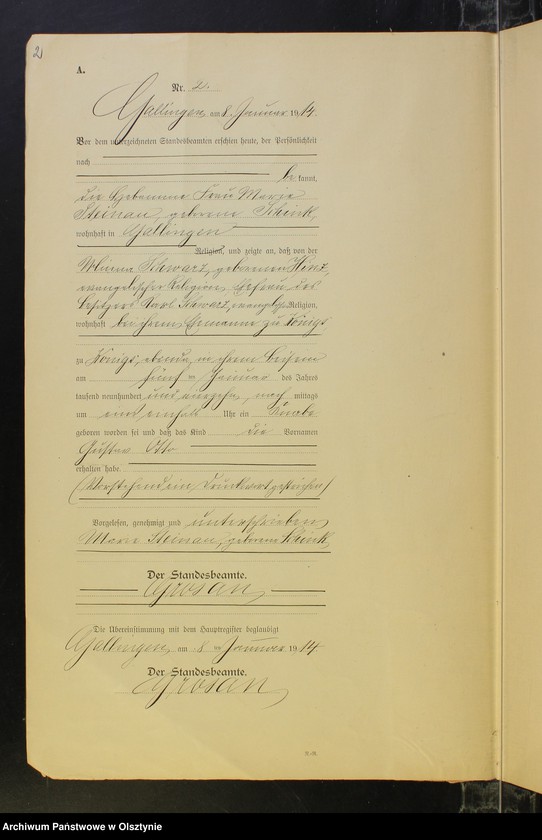 2
A.
Nr. 2.
Gallingen, am 8. Januar 1914.
Vor dem unterzeichneten Standesbeamten erschien heute, der Persönlichkeit
nach
be kannt,
die Hebamme Frau Marie
Steinau, geborene Schink,
wohnhaft in Gallingen
Religion, und zeigte an, daß von der
Schwarz, geborenen Hinz,
evangelischer Religion, Ehefrau des
Besitzers Karl Schwarz, evangelischer Religion,
wohnhaft bei ihrem Ehemanne zu Königs
zu Königs, ebenda, in ihrem Beisein
am fünften Januar des Jahres
tausend neunhundert und vierzehn, nach mittags
um Uhr ein Knabe
geboren worden sei und daß das Kind die Vornamen
Gustav Otto
erhalten habe.
(Vorstehend ein Druckwort gestrichen)
Vorgelesen, genehmigt und unterschrieben
Marie Steinau, geborene Schink
Der Standesbeamte.
Grosan
Die Übereinstimmung mit dem Hauptregister beglaubigt
Gallingen, am 8 ten Januar 1914
Der Standesbeamte.
Grosan
Archiwum Państwowe w Olsztynie